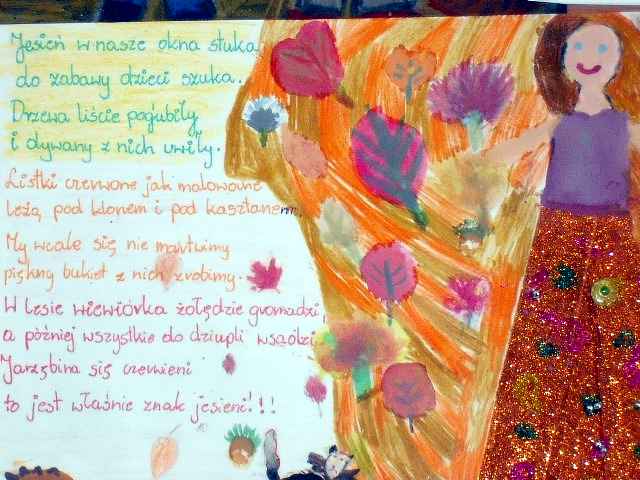 Jesień w nasze okna stuka,
do zabawy dzieci szuka.
Drzewa liście pogubiły
i dywany z nich uwiły.
Listki czerwone jak malowane
leżą pod klonem i pod kasztanem.
My wcale się nie martwimy
piękny bukiet z nich zrobimy.
W lesie wiewiórka żołędzie gromadzi,
a później wszystkie do dziupli wsadzi
Jarzębina się czerwieni
to jest właśnie znak jesieni!!!